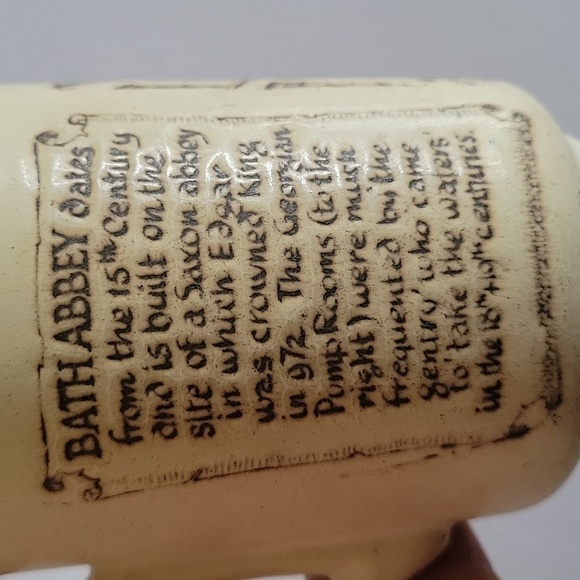 BATH ABBEY dates
from the 15th Century
and is built on the
site of a Saxon abbey
in which Edgar
was crowned King
in 972. The Georgian
Pump Rooms (to the
right) were much
frequented by the
'gentry' who came
'to take the waters'
in the 18th & 19th centuries.